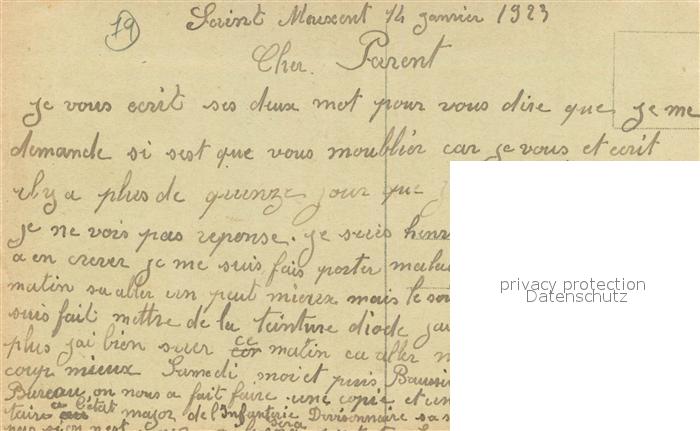 19
Saint Maixent 14 janvier 1923
Cher Parent
je vous ecrit ses deux mot pour vous dire que je me
demande si sest que vous moublier car je vous et ecrit
il y a plus de quinze jour que
je ne vois pas reponse. je suis
a en crever je me suis fais porter
matin sa aller un peut mieux mais le
suis fait mettre de la teinture diode
plus jai bien suer ce matin ca aller
coup mieux Samedi moi et puis
Bureau, on nous a fait faire une copie et
taire a l'état major de l'Infanterie Divisionnaire
privacy protection
Datenschutz